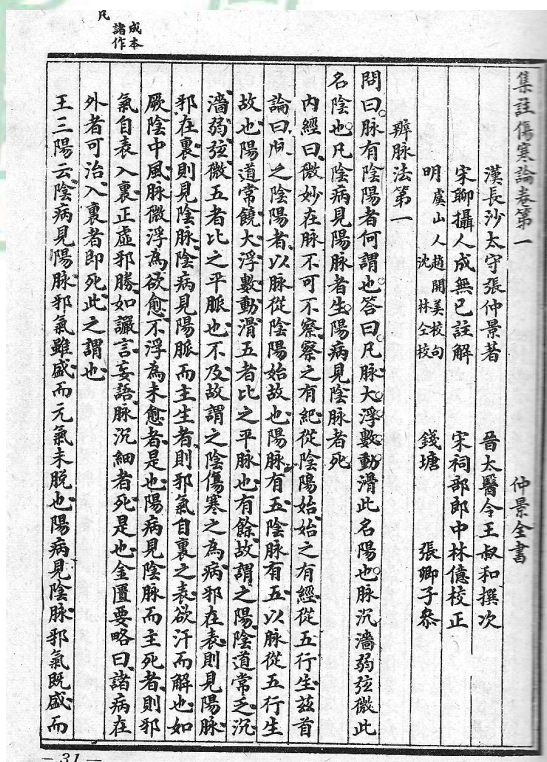 集註傷寒論卷第一
仲景全書
漢長沙太守張仲景著
晉太醫令王叔和撰次
宋聊攝人成無已註解
宋祠部郎中林億校正
明虞山人趙開美校句
沈林仝校
錢塘
張卿子叅
辨脉法第一
問曰脉有陰陽者何謂也答曰凡脉大浮數動滑此名陽也脉沉濇弱弦微此
名陰也凡陰病見陽脉者生陽病見陰脉者死
內經曰微妙在脉不可不察察之有紀從陰陽始始之有經從五行生兹首
論曰脉之陰陽者以脉從陰陽始故也陽脉有五陰脉有五以脉從五行生
故也陽道常饒大浮數動滑五者比之平脉也有餘故謂之陽陰道常乏沉
濇弱弦微五者比之平脈也不及故謂之陰傷寒之為病邪在表則見陽脉
邪在裏則見陰脉陰病見陽脈而主生者則邪氣自裏之表欲汗而解也如
厥陰中風脉微浮為欲愈不浮為未愈者是也陽病見陰脉而主死者則邪
氣自表入裏正虛邪勝如讝言妄語脉沉細者死是也金匱要略曰諸病在
外者可治入裏者即死此之謂也
王三陽云陰病見陽脉邪氣雖盛而元氣未脱也陽病見陰脉邪氣既盛而
凡
成本
諸作
— 31 —